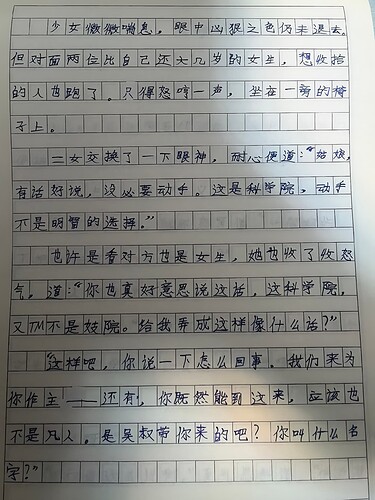 少女微微喘息，眼中凶狠之色仍未退去。
但对面两位比自己还大几岁的女生，想收拾
的人也跑了。只得怒哼一声，坐在一旁的椅
子上。
二女交换了一下眼神，耐心便道：“姑娘，
有话好说，没必要动手。这是科学院，动手
不是明智的选择。”
也许是看对方也是女生，她也收了收态
气，道：“你也真好意思说这话，这科学院，
又TM不是妓院。给我弄成这样像什么话？”
“这样吧，你说一下怎么回事。我们来为
你作主！——还有，你既然能到这来，应该也
不是凡人。是吴叔带你来的吧？你叫什么名
字？”